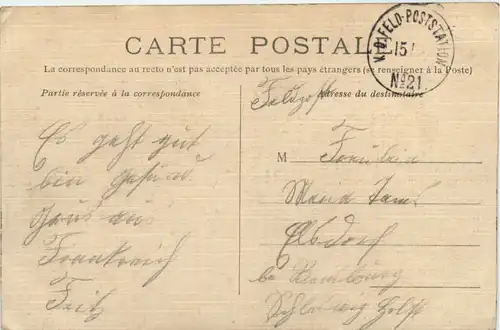 CARTE POSTALE
K.D. FELD-POSTSTATION
15
No 21
La correspondance au recto n'est pas acceptée par tous les pays étrangers (se renseigner à la Poste)
Partie réservée à la correspondance
Adresse du destinataire
Feldpost
Es geht gut
bin gesund
Gruß aus
Frankreich
Fritz
M Fräulein
Maria
Elsdorf
bei Rendsburg
Schleswig Holst